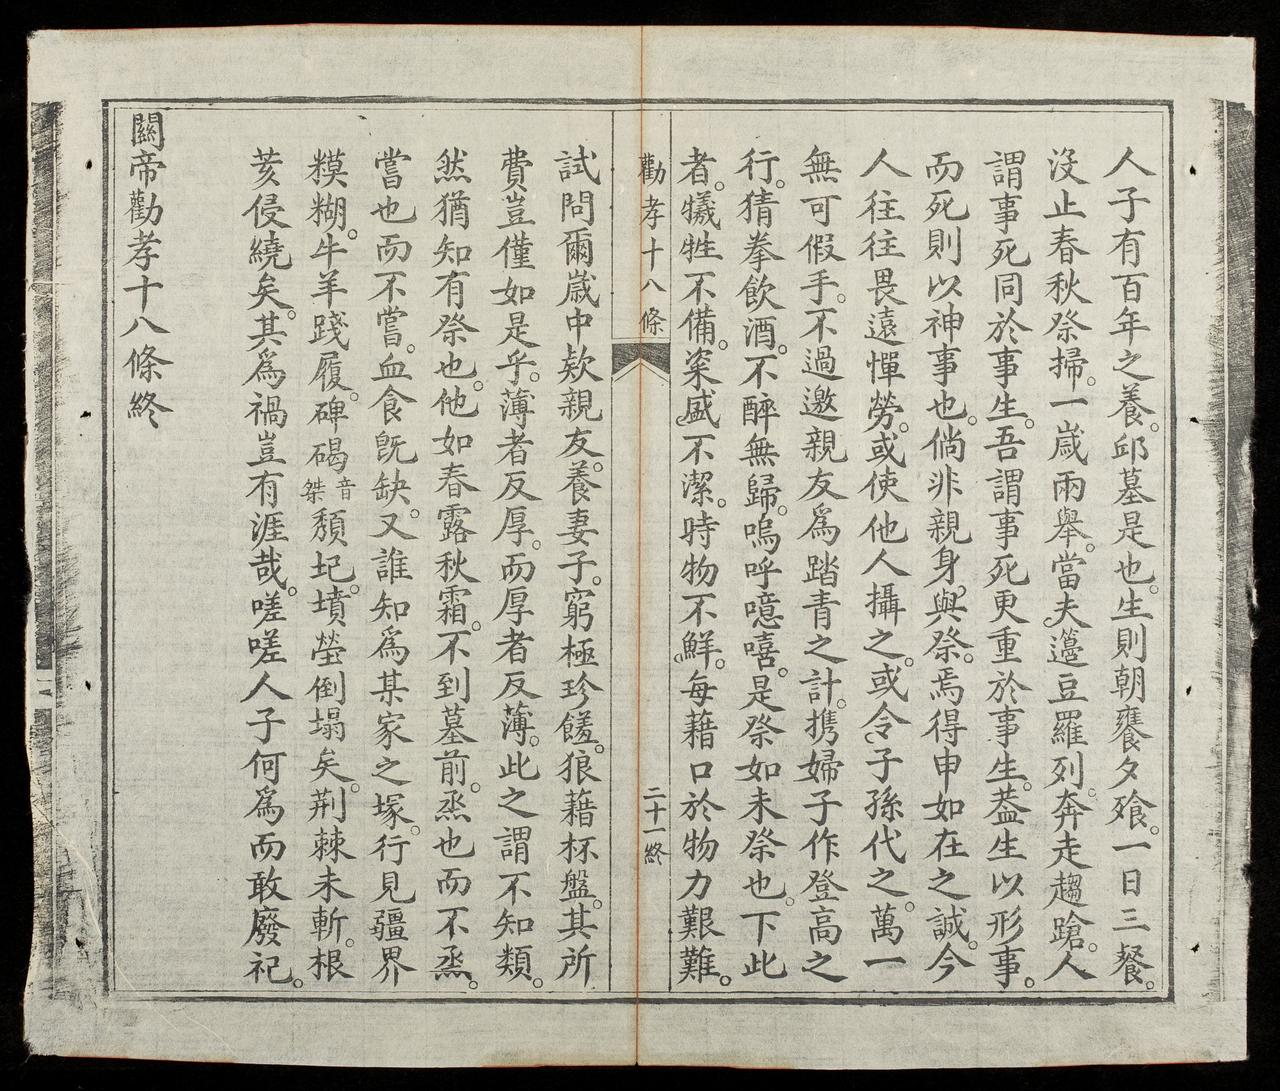 人子有百年之養。邱墓是也。生則朝饔夕飱。一日三餐。
沒止春秋祭掃。一歲兩舉。當夫籩豆羅列。奔走趨蹌。人
謂事死同於事生。吾謂事死更重於事生。葢生以形事。
而死則以神事也。倘非親身與祭。焉得申如在之誠。今
人往往畏遠憚勞。或使他人攝之。或令子孫代之。萬一
無可假手。不過邀親友爲踏青之計。携婦子作登高之
行。猜拳飲酒。不醉無歸。嗚呼噫嘻。是祭如未祭也。下此
者。犧牲不備。粢盛不潔。時物不鮮。每藉口於物力艱難。
勸孝十八條
二十一終
試問爾歲中欵親友。養妻子。窮極珍饈。狼藉杯盤。其所
費豈僅如是乎。薄者反厚。而厚者反薄。此之謂不知類。
然猶知有祭也。他如春露秋霜。不到墓前。烝也而不烝。
嘗也而不嘗。血食旣缺。又誰知爲某家之塚。行見疆界
糢糊。牛羊踐履。碑碣音桀頹圮。墳塋倒塌矣。荆棘未斬。根
荄侵繞矣。其爲禍豈有涯哉。嗟嗟人子何爲而敢廢祀。
關帝勸孝十八條終